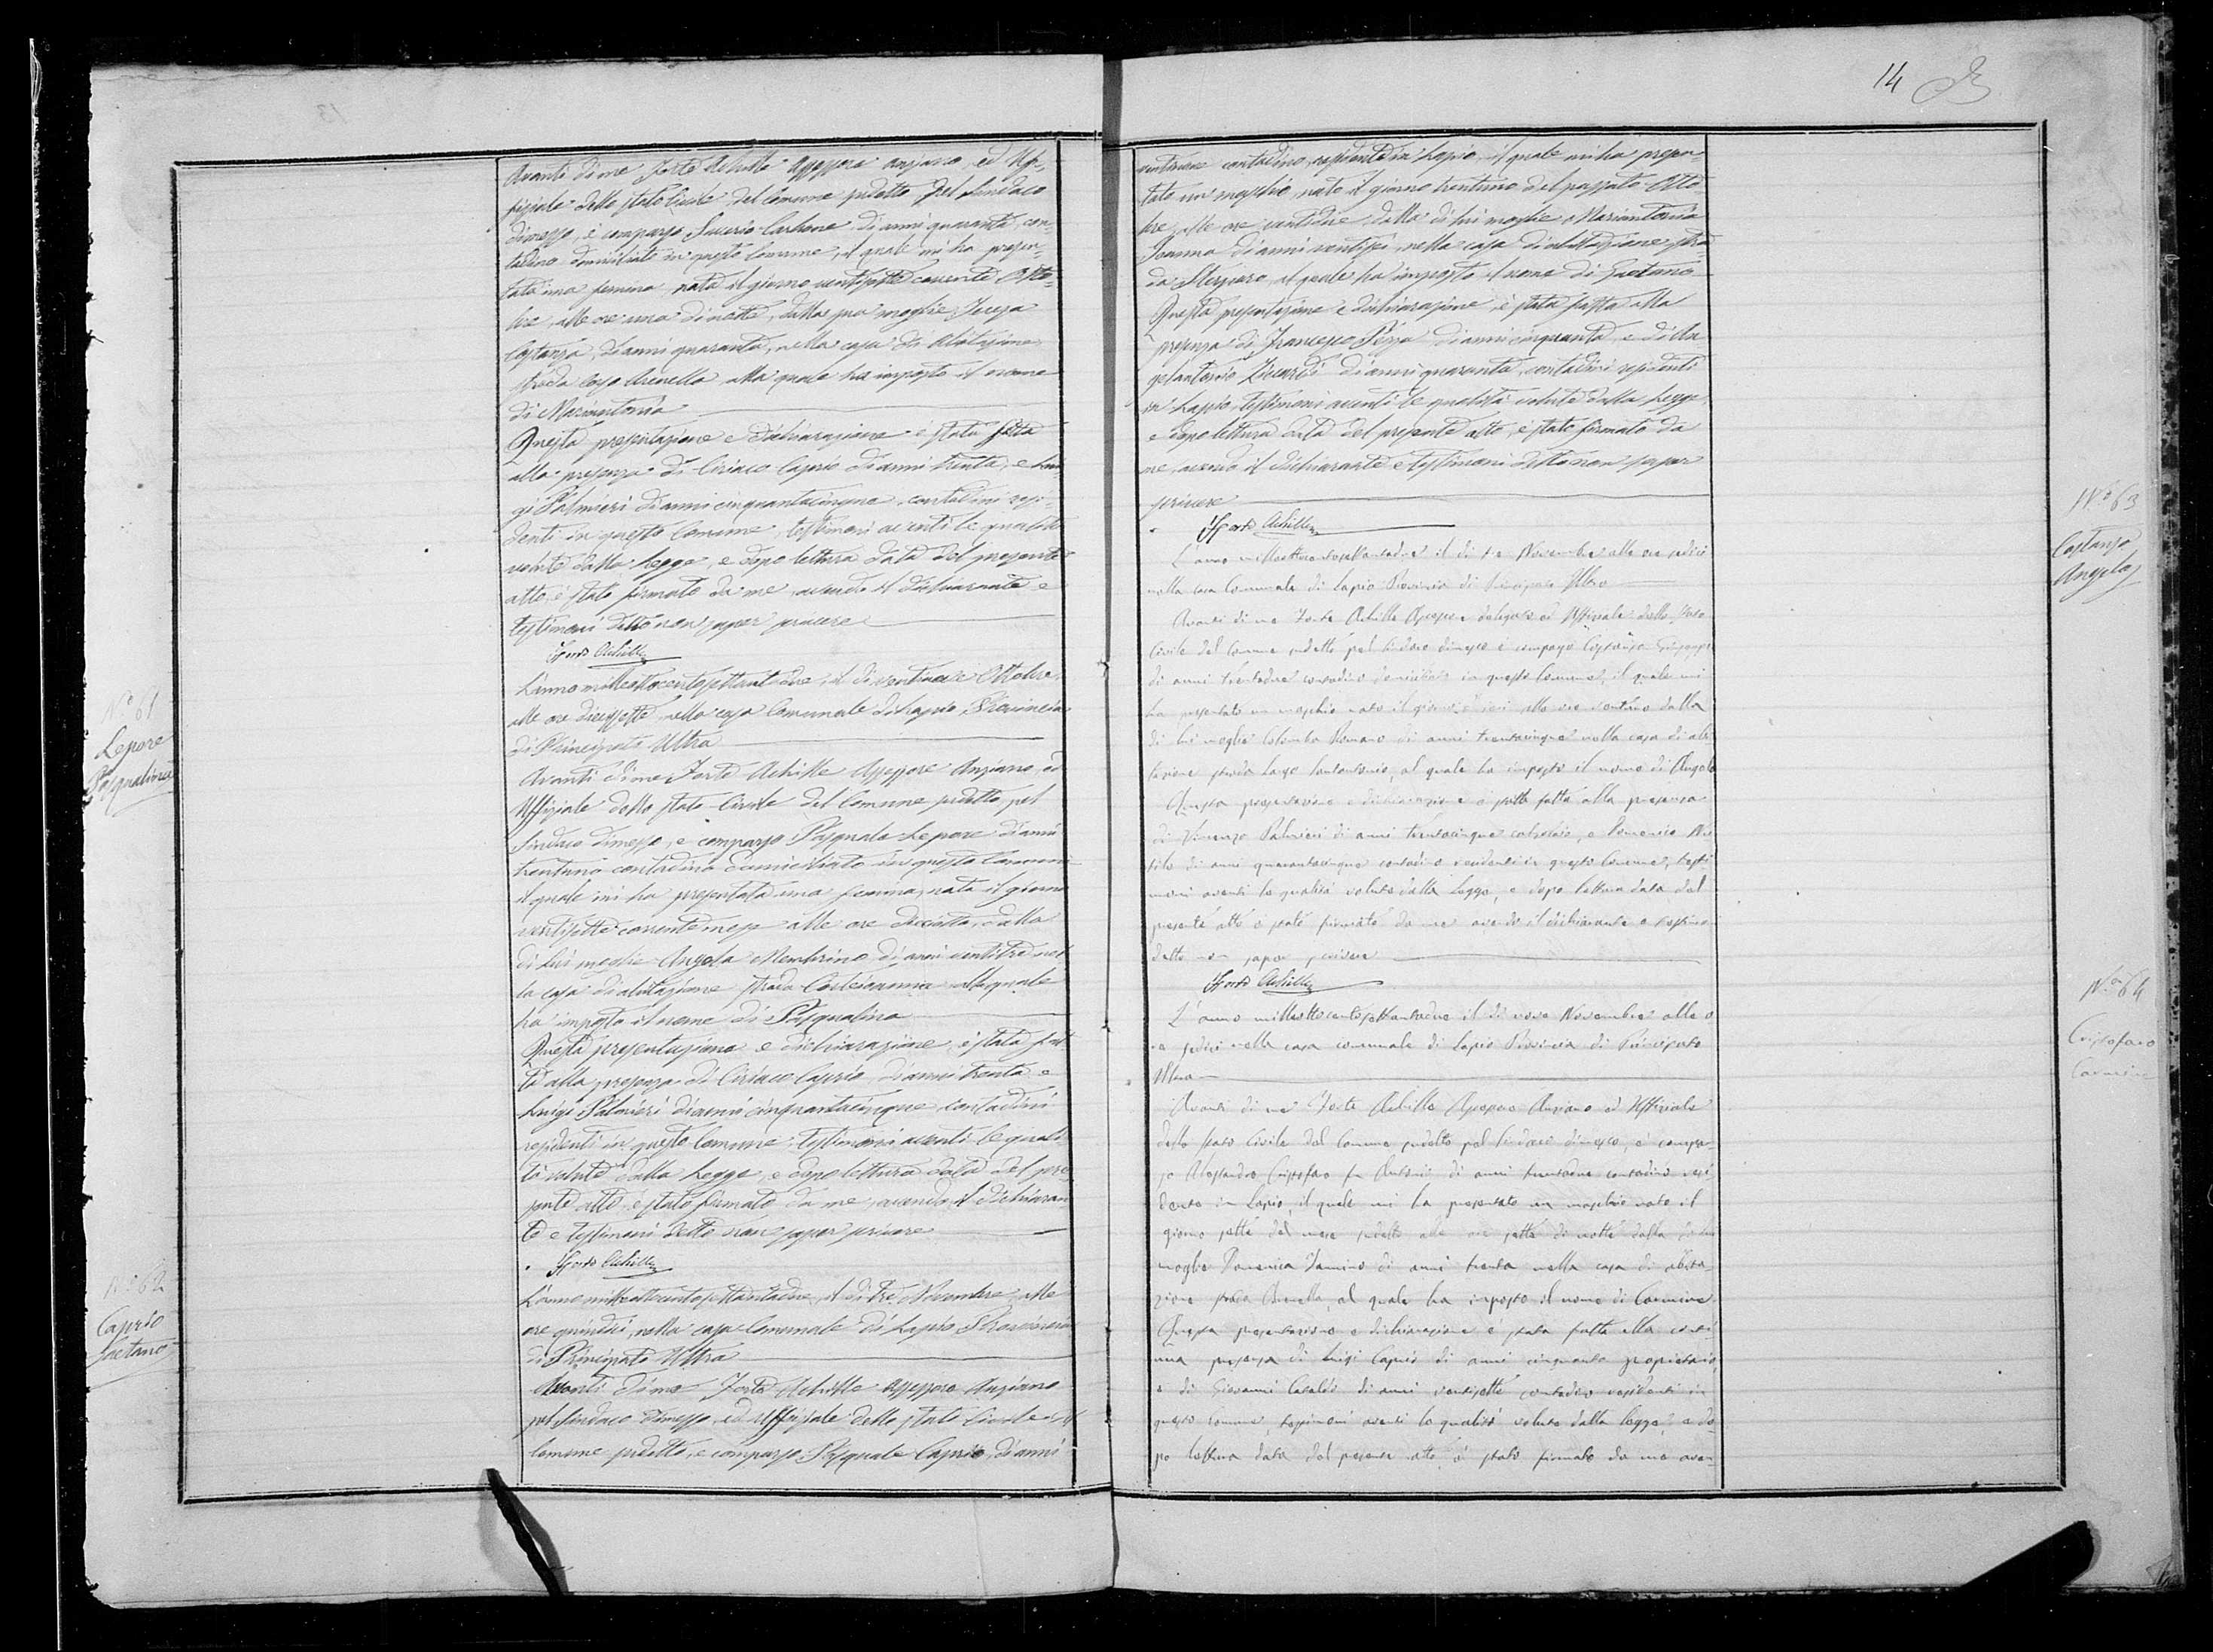 14
Avanti di me Forte Achille Assessore anziano, ed Uf-
fiziale dello Stato Civile del Comune sudetto pel Sindaco
dimesso, è comparso Saverio Carbone di anni quaranta, con-
tadino domiciliato in questo Comune, il quale mi ha presen-
tata una femina, nata il giorno ventisette corrente Otto-
bre, alle ore una di notte, dalla sua moglie Teresa
Costanza, di anni quaranta, nella casa di abitazione
strada Arenella, alla quale ha imposto il nome
di Mariantonia
Questa presentazione e dichiarazione è stata fatta
alla presenza di Ciriaco Caprio di anni trenta, e Lui-
gi Palmieri di anni cinquantacinque, contadini resi-
denti in questo Comune, testimoni aventi le qualità
volute dalla Legge, e dopo lettura data del presente
atto, è stato firmato da me, avendo il dichiarante e
testimoni detto non saper scrivere
Forte Achille
N.o 61
Lepore
Pasqualina
L'anno milleottocentosettantadue, il di ventinove Ottobre,
alle ore diecissette, nella casa Comunale di Lapio, Provincia
di Principato Ultra
Avanti di me Forte Achille Assessore Anziano, ed
Uffiziale dello stato Civile del Comune sudetto, pel
Sindaco dimesso, e comparso Pasquale Lepore di anni
trentuno contadino domiciliato in questo Comune
il quale mi ha presentata una femina, nata il giorno
ventisette corrente mese alle ore diciotto, dalla
di lui moglie Angela Membrino di anni ventitre nel-
la casa di abitazione strada alla quale
ha imposto il nome di Pasqualina
Questa presentazione e dichiarazione, è stata fat-
ta alla presenza di Ciriaco Caprio, di anni trenta e
Luigi Palmieri di anni cinquantacinque contadini
residenti in questo Comune, testimoni aventi le quali-
tà volute dalla Legge, e dopo lettura data del pre-
sente atto, è stato firmato da me, avendo il dichiaran-
te e testimoni detto non saper scrivere
Forte Achille
N.o 62
Caprio
Gaetano
L'anno milleottocentosettantadue, il di tre Novembre, alle
ore quindici, nella casa Comunale di Lapio Provincia
di Principato Ultra
Avanti di me Forte Achille Assessore Anziano
pel Sindaco dimesso, ed Uffiziale dello stato Civile del
Comune sudetto, e comparso Pasquale Caprio, di anni
contadino, residente in Lapio, il quale mi ha presen-
tato un maschio, nato il giorno trentuno del passato Otto-
bre, alle ore ventidue dalla di lui moglie Mariantonia
Ioanna di anni ventisei, nella casa di abitazione stra-
da al quale ha imposto il nome di Gaetano
Questa presentazione e dichiarazione, è stata fatta alla
presenza di Francesco di anni cinquanta, e di An-
gelantonio di anni quaranta, contadini residenti
in Lapio, testimoni aventi le qualità volute dalla Legge,
e dopo lettura data del presente atto, è stato firmato da
me, avendo il dichiarante e testimoni detto non saper
scrivere
Forte Achille
N.o 63
Costanza
Angelo
L'anno milleottocentosettantadue il di tre Novembre alle ore sedici
nella casa Comunale di Lapio Provincia di Principato Ultra
Avanti di me Forte Achille Assessore delegato ed Uffiziale dello Stato
Civile del Comune sudetto pel Sindaco dimesso è comparso Costanza Giuseppe
di anni trentadue contadino domiciliato in questo Comune, il quale mi
ha presentato un maschio nato il giorno ieri alle ore ventuno dalla
di lui moglie Colomba Romano di anni trentacinque nella casa di abi-
tazione strada Largo Santantonio, al quale ha imposto il nome di Angelo
Questa presentazione e dichiarazione è stata fatta alla presenza
di Vincenzo Palmieri di anni trentacinque calzolaio, e Domenico
di anni quarantacinque contadino residenti in questo Comune, testi-
moni aventi le qualità volute dalla Legge, e dopo lettura data del
presente atto è stato firmato da me avendo il dichiarante e testimoni
detto non saper scrivere
Forte Achille
N.o 64
Cristofaro
Carmine
L'anno milleottocentosettantadue il di nove Novembre alle o-
re sedici nella casa comunale di Lapio Provincia di Principato
Ultra
Avanti di me Forte Achille Assessore Anziano ed Uffiziale
dello Stato Civile del Comune sudetto pel Sindaco dimesso, è compar-
so Alessandro Cristofaro fu Antonio di anni trentadue contadino resi-
dente in Lapio, il quale mi ha presentato un maschio nato il
giorno sette del mese sudetto alle ore sette di notte dalla di lui
moglie Domenica Iannino di anni trenta nella casa di abita-
zione strada Arenella, al quale ha imposto il nome di Carmine
Questa presentazione e dichiarazione è stata fatta alla conti-
nua presenza di Luigi Caprio di anni cinquanta proprietario,
e di Giovanni Cataldo di anni ventisette contadino residenti in
questo comune, testimoni aventi le qualità volute dalla legge, e do-
po lettura data del presente atto è stato firmato da me aven-